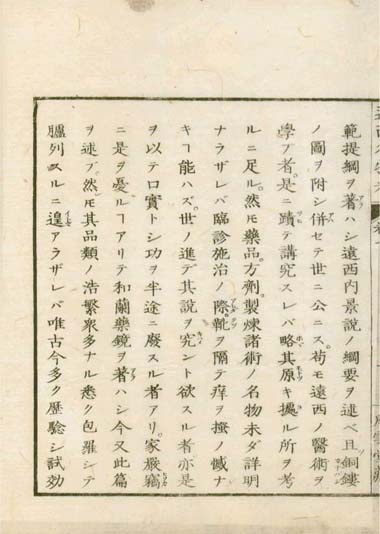 範提綱ヲ著ハシ遠西内景説ノ綱要ヲ述ベ且ツ銅鏤
ノ圖ヲ附シ併セテ世ニ公ニス。苟モ遠西ノ醫術ヲ
學ブ者。是ニ躋テ講究スレバ略其原キ據ル所ヲ考
ルニ足ル。然𪜈藥品。方劑。製煉諸術ノ名物未ダ詳明
ナラザレバ臨診施治ノ際。靴ヲ隔テ痒ヲ搔ノ憾ナ
キヿ能ハズ。世ノ進デ其説ヲ究ント欲スル者亦是
ヲ以テ口實トシ功ヲ半途ニ廢スル者アリ。家嚴竊
ニ是ヲ憂ルヿアリテ和蘭藥鏡ヲ著ハシ今又此篇
ヲ述ブ。然𪜈其品類ノ浩繁衆多ナル悉ク包羅シテ
臚列スルニ遑アラザレバ唯古今多ク歴驗シ試効